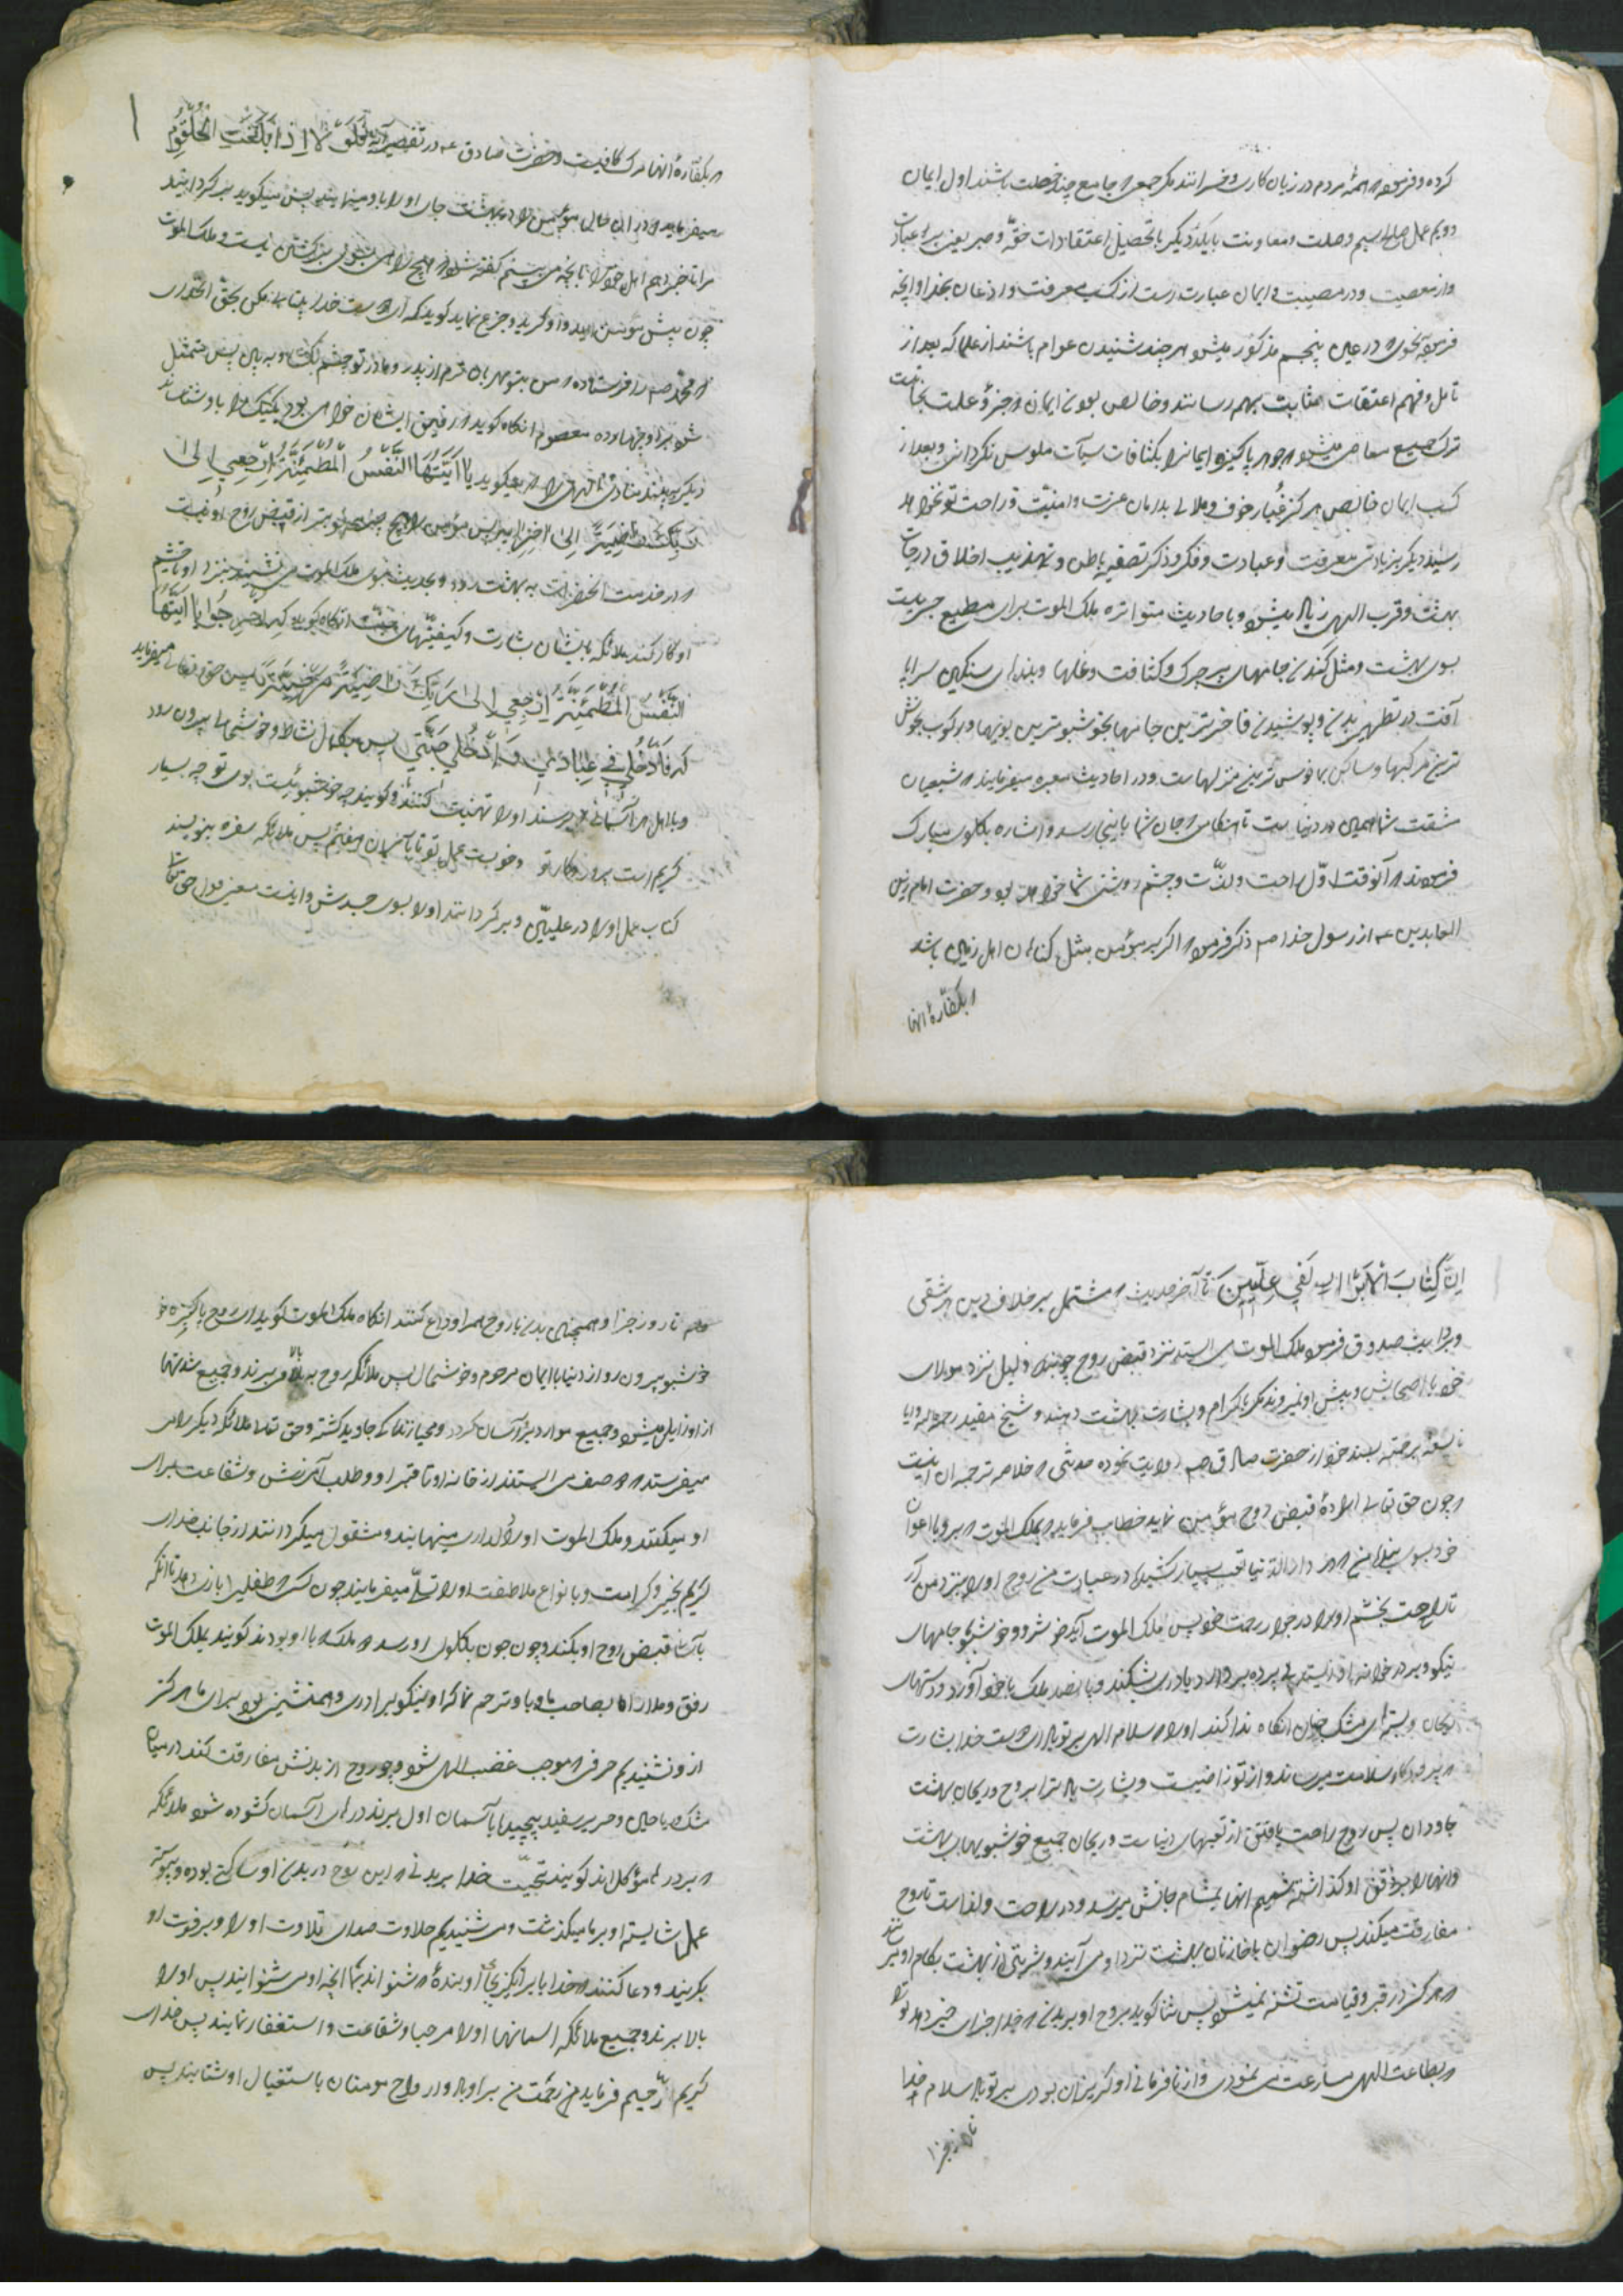 کرده و فرموده که همهٔ مردم در زیان کاری و خسرانند مگر جمعی که جامع چند خصلت باشند اول ایمان
دویم عمل صالح سیم وصلت و معاونت با یکدیگر با تحصیل اعتقادات حقه و صبر یعنی بر عبادت
و از معصیت و در مصیبت و ایمان عبارت است از کسب معرفت و اذعان بخدا و آنچه
فرموده بنحوی که در عین پنجم مذکور میشود هر چند شنیدن عوام باشند از علما که بعد از
تأمل و فهم اعتقادات بمثابت بهم رسانند و خالص بودن ایمان که جزو علت نجاتست
ترک جمیع معاصی میشود که جوهر پاکیزه ایمانرا بکثافات سیآت ملوس نگردانی و بعد از
کسب ایمان خالص هرگز غبار خوف و ملالی بدامان عزت و امنیت و راحت تو نخواهد
رسید دیگر بزیادتی معرفت و عبادت و فکر و ذکر و تصفیه باطن و تهذیب اخلاق درجات
بهشت و قرب الهی زیاد میشود و باحادیث متواتره ملک الموت برای مطیع
بوی بهشت و مثل کندن جامهای پر چرک و کثافت و غلها و بندهای سنگین سراپا
آفت در تطهیر بدن و پوشیدن فاخرترین جامها بخوشبوترین بویها و رکوب بخوش
ترین مرکبها و ساکن بمأنوس ترین منزلهاست و در احادیث معتبره میفرمایند که شیعیان
مشقت شما همین در دنیاست تا هنگامی که جان شما باینجا رسد و اشاره بگلوی مبارک
فرمودند که آنوقت اول راحت و لذت و چشم روشنی شما خواهد بود و حضرت امام زین
العابدین عه از رسول خدا صه ذکر فرموده که اگر بر مؤمن مثل گناهان اهل زمین باشد
که بکفارهٔ آنها
که بکفارهٔ آنها مرگ کافیست و حضرت صادق عه در تفسیر آیه فَلَوْلَا اِذَا بَلَغَتِ الْحُلْقُومَ
میفرماید که در این حال مؤمن را در بهشت جای او را باو مینمایند پس میگوید برگردانید
مرا تا خبر دهم اهل خود را بآنچه می بینم گفته شود که هیچ راهی بسوی برگشتن نیست و ملک الموت
چون پیش مؤمن آید و او گریه و جزع نماید گوید که ای دوست خدا بیتابی مکن بحق آنخدای
که محمد صه را فرستاده که من بتو مهربان ترم از پدر و مادر تو چشم بگشا و ببین پس متمثل
شود برای او چهارده معصوم آنگاه گوید که رفیق ایشان خواهی بود
دیگر بیند منادی ناگهی را که میگوید یَا اَیَّتُهَا النَّفْسُ الْمُطْمَئِنَّةُ اِرْجِعِي اِلٰی
رَبِّکِ رَاضِیَةً اِلٰی آخِرِهَا پس مؤمن را هیچ چیز محبوبتر از قبض روح او نیست
که در خدمت آنحضرات به بهشت رود و بحدیث نبوی ملک الموت می نشیند نزد او تا چشم
او کار کند ملائکه با ایشان بشارت و کیفیتهای جنت آنگاه گوید که اُخْرُجُوا یَا اَیَّتُهَا
النَّفْسُ الْمُطْمَئِنَّةُ اِرْجِعِي اِلٰی رَبِّکِ رَاضِیَةً مَرْضِیَّةً پس حق تعالی میفرماید
که فَادْخُلِي فِي عِبَادِي وَ ادْخُلِي جَنَّتِي پس بکمال نشاط و خوشحالی بیرون رود
و باهل هر آسمانی که برسند او را تهنیت کنند و گویند چه خوشبوئیست بوی تو چه بسیار
کریم است پروردگار تو و خوبست عمل تو تا بآسمان هفتم پس ملائکه سفره بنویسند
کتاب عمل او را در علیین و برگردانند او را بسوی جسدش و اینست معنی قول حق تعالی
اِنَّ کِتَابَ الْاَبْرَارِ لَفِي عِلِّیِّینَ تا آخر حدیث که مشتمل بر خلاف این هر شقی
و بروایت صدوق فرموده ملک الموت می ایستد نزد قبض روح چون بنده ذلیل نزد مولای
خود با اصحابش و پیش او نمیروند مگر باکرام و بشارت بهشت دهند و شیخ مفید رحمه الله
بسند خود از حضرت صادق عه روایت نموده حدیثی که خلاصه ترجمه آن اینست
که چون حق تعالی ارادهٔ قبض روح مؤمن نماید خطاب فرماید که بملک الموت که برو با اعوان
خود بسوی بندهٔ من که در دار الدنیا تعب بسیار کشیده در عبادت من روح او را بنزد من آر
تا راحت بخشم او را در جوار رحمت خود پس ملک الموت آید خوشرو و خوشبو جامهای
نیکو و بر در خوانه او بایستد بی پرده بردارد یا دری بشکند و پانصد ملک با خود آورد و دستهای
ریحان و بستهای مشک جنان آنگاه ندا کند او را که سلام الهی بر تو باد ای دوست خدا بشارت
که پروردگار سلامت میرساند و از تو راضیست و بشارت باد ترا بروح و ریحان بهشت
جاودان پس روح راحت یافتن از تعبهای دنیاست و ریحان جمیع خوشبویهای بهشت
و آنها را بر ذقن او گذاشته شمیم آنها بمشام جانش میرسد و در راحت و لذاست تا روح
مفارقت میکند پس رضوان با خازنان بهشت نزد او می آیند و شربتی از بهشت بکام او بریزند
که هرگز در قبر و قیامت تشنه نمیشود پس ثنا گوید بروح او بر بدن که خدا جزای خیر دهد ترا
که بطاعت الهی مسارعت می نمودی و از نافرمانی او گریزان بودی بر تو باد سلام خدا
تا روز جزا
تا روز جزا و همچنین بدن با روح هم او وداع کنند آنگاه ملک الموت گوید ای روح پاکیزه خو
خوشبو بیرون رو از دنیا با ایمان مرحوم و خوشحال پس ملائکه روح به بالا می برند و جمیع شدتها
از او زایل میشود و جمیع موارد بر او آسان گردد و محیا زندگی جاوید گشته و حق تعالی ملائکه دیگر را
میفرستد که صف می ایستند از خانه او تا قبر او و طلب آمرزش و شفاعت برای
او میکنند و ملک الموت او را دلداری مینمایند و مشغول میگردانند از جانب خدای
کریم بخیر و کرامت و بانواع ملاطفت او را تسلی میفرمایند چون کسی که طفلی را بازی دهد تا آنکه
بآسانی قبض روح او بکند و چون جون بگلوی او رسد دو ملک که با او بودند گویند بملک الموت
رفق و مدارا با صاحب ما و باو ترحم نما که او نیکو برادری و همنشین بود برای ما هرگز
از او نشنیدیم حرفی که موجب غضب الهی شود و چو روح از بدنش مفارقت کند در میان
مشک یا حلی و حریر سفید پیچیده تا بآسمان اول برند درهای آسمان گشوده شود ملائکه
که بر درها مؤکل اند گویند تحیت خدا بر بدنی که این روح در بدن او ساکن بوده و پیوسته
عمل شایسته او بر ما میگذشت و می شنیدیم حلاوت صدای تلاوت او را و بر فوت او
بگریند و دعا کنند که خدایا برانگیز بجای او بندهٔ که شنواند بما آنچه او می شنوانید پس او را
بالا برند و جمیع ملائکه اسمانها او را مرحبا و شفاعت و استغفار نمایند پس خدای
کریم رحیم فرماید که رحمت من بر او باد و ارواح مومنان باستقبال او شتابند پس